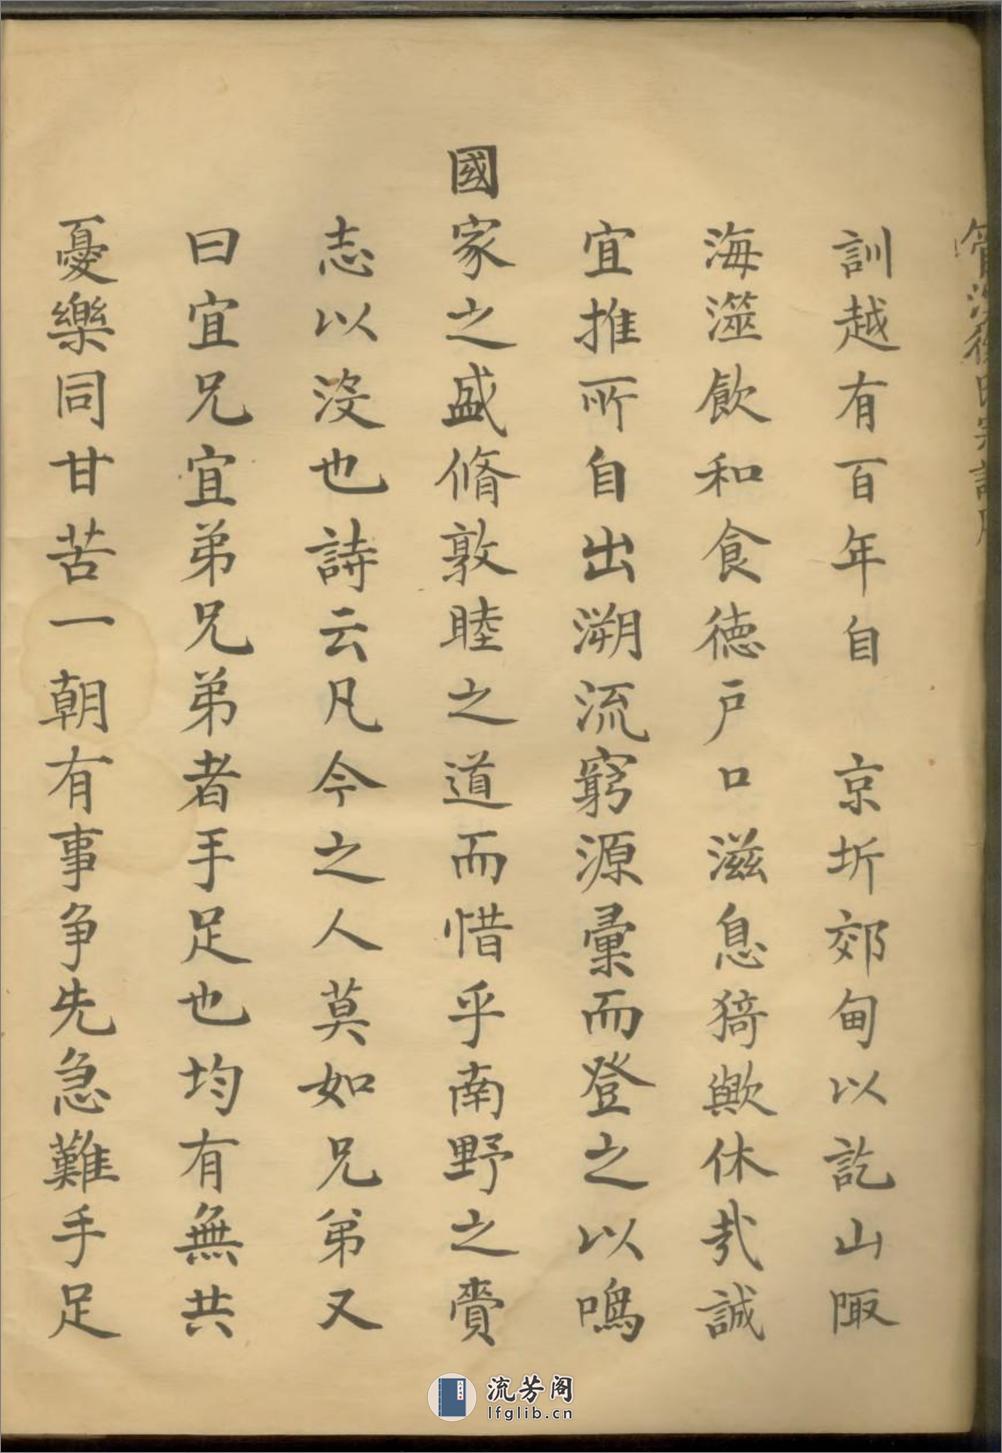 訓越有百年自　京圻郊甸以訖山陬
海澨飲和食徳戸口滋息猗歟休㢤誠
宜推所自出溯流窮源彚而登之以鳴
國家之盛脩敦睦之道而惜乎南野之賫
志以没也詩云凡今之人莫如兄弟又
曰宜兄宜弟兄弟者手足也均有無共
憂樂同甘苦一朝有事争先急難手足
流芳阁
lfglib.cn